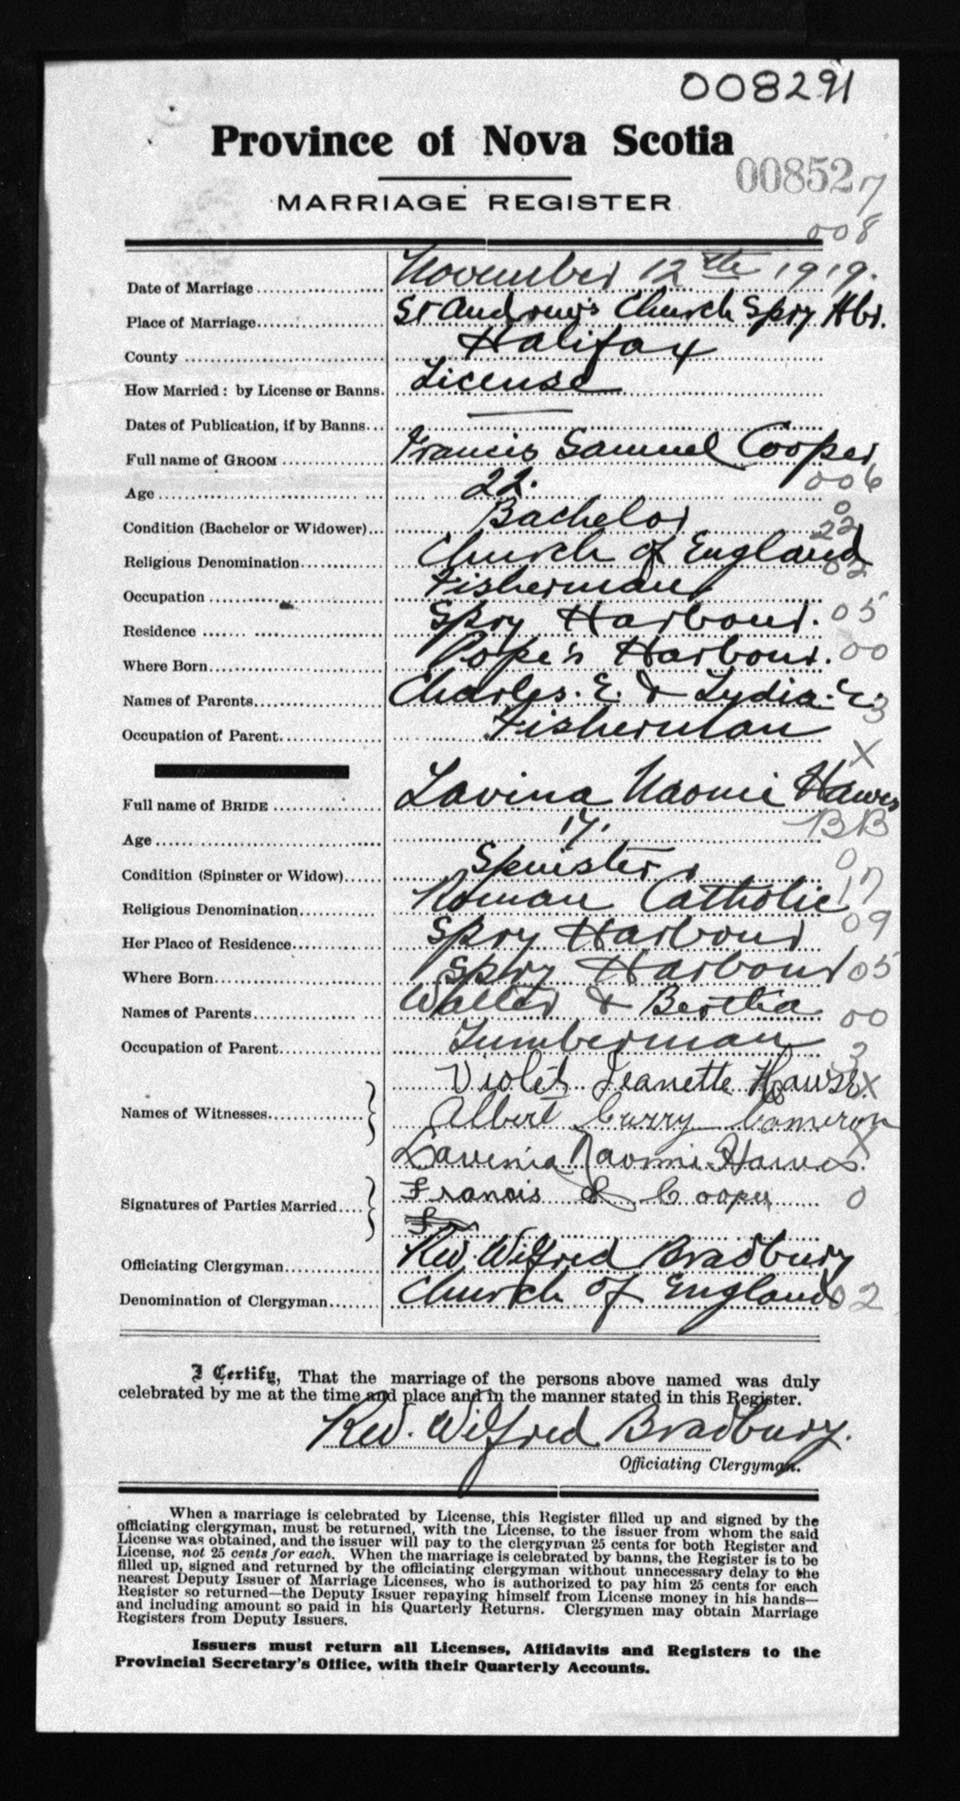 008291
Province of Nova Scotia
008527
MARRIAGE REGISTER
008
Date of Marriage November 12th 1919.
Place of Marriage St Andrew's Church Spry Hbr.
County Halifax
How Married: by License or Banns. License
Dates of Publication, if by Banns... —
Full name of GROOM Francis Samuel Cooper
006
Age 22.
0
Condition (Bachelor or Widower)... Bachelor
22
Religious Denomination Church of England
02
Occupation Fisherman
05
Residence Spry Harbour.
00
Where Born Pope's Harbour.
Names of Parents Charles. E. & Lydia. E.
3
Occupation of Parent Fisherman
X
Full name of BRIDE Lavina Naomi Hawes
BB
Age 17.
0
Condition (Spinster or Widow) Spinster
17
Religious Denomination Roman Catholic
09
Her Place of Residence Spry Harbour
05
Where Born Spry Harbour
Names of Parents Walter & Bertha
00
Occupation of Parent Lumberman
3
Names of Witnesses Violet Jeanette Hawes
X
Albert Curry Cameron
X
Signatures of Parties Married Lavenia Naomi Hawes.
Francis S Cooper
0
Officiating Clergyman Rev. Wilfred Bradbury
Denomination of Clergyman Church of England
02
I Certify, That the marriage of the persons above named was duly
celebrated by me at the time and place and in the manner stated in this Register.
Rev. Wilfred Bradbury.
Officiating Clergyman.
When a marriage is celebrated by License, this Register filled up and signed by the
officiating clergyman, must be returned, with the License, to the issuer from whom the said
License was obtained, and the issuer will pay to the clergyman 25 cents for both Register and
License, not 25 cents for each. When the marriage is celebrated by banns, the Register is to be
filled up, signed and returned by the officiating clergyman without unnecessary delay to the
nearest Deputy Issuer of Marriage Licenses, who is authorized to pay him 25 cents for each
Register so returned—the Deputy Issuer repaying himself from License money in his hands—
and including amount so paid in his Quarterly Returns. Clergymen may obtain Marriage
Registers from Deputy Issuers.
Issuers must return all Licenses, Affidavits and Registers to the
Provincial Secretary's Office, with their Quarterly Accounts.